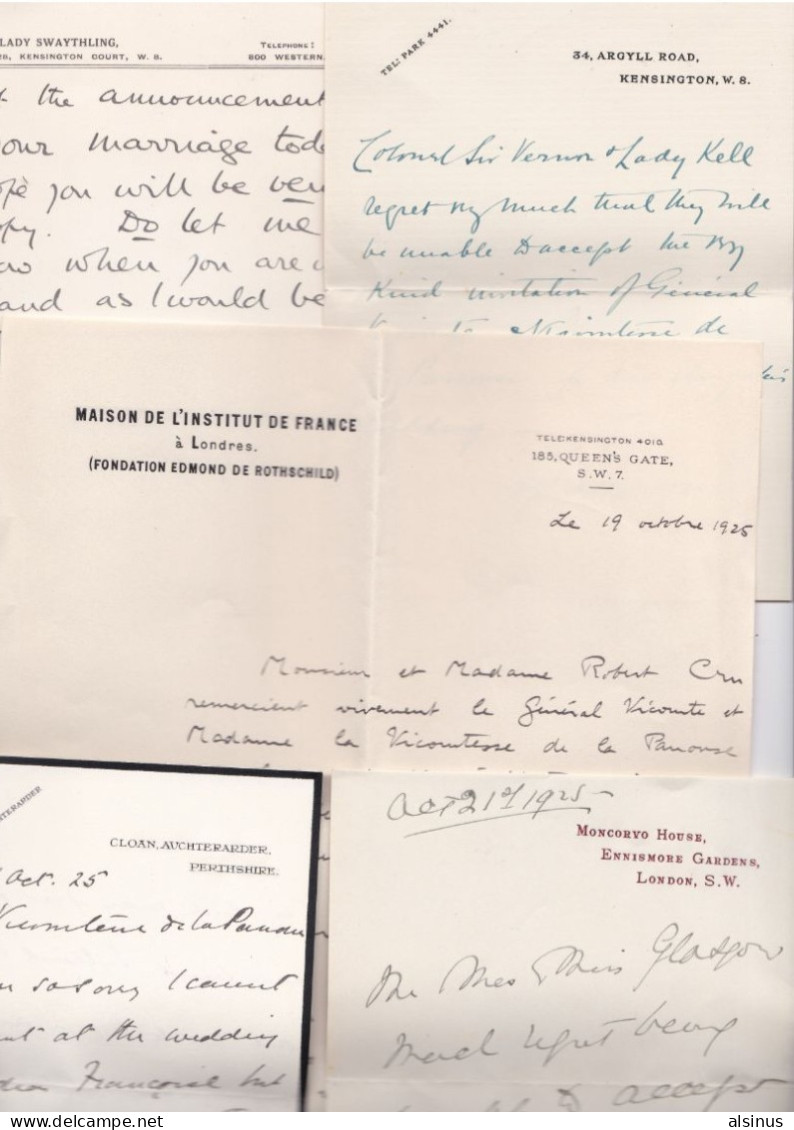 LADY SWAYTHLING,
KENSINGTON COURT, W. 8.
TELEPHONE:
800 WESTERN.
the announcement
your marriage
you will be
Do let me
when you are
and as I would be
TEL: PARK 4441.
34, ARGYLL ROAD,
KENSINGTON, W. 8.
Colonel Sir Vernon & Lady Kell
regret very much that they will
be unable to accept the very
kind invitation of Général
Vicomtesse de
MAISON DE L'INSTITUT DE FRANCE
à Londres.
(FONDATION EDMOND DE ROTHSCHILD)
TEL: KENSINGTON 4016
185, QUEEN'S GATE,
S.W. 7.
Le 19 octobre 1925
Monsieur et Madame Robert Cru
remercient vivement le Général Vicomte et
Madame la Vicomtesse de la Panouse
CLOAN, AUCHTERARDER,
PERTHSHIRE.
Oct. 25
Vicomtesse de la Panouse
so sorry I cannot
at the wedding
Françoise but
Oct 21st 1925
MONCORVO HOUSE,
ENNISMORE GARDENS,
LONDON, S.W.
Glasgow
much regret being
to accept
alsinus